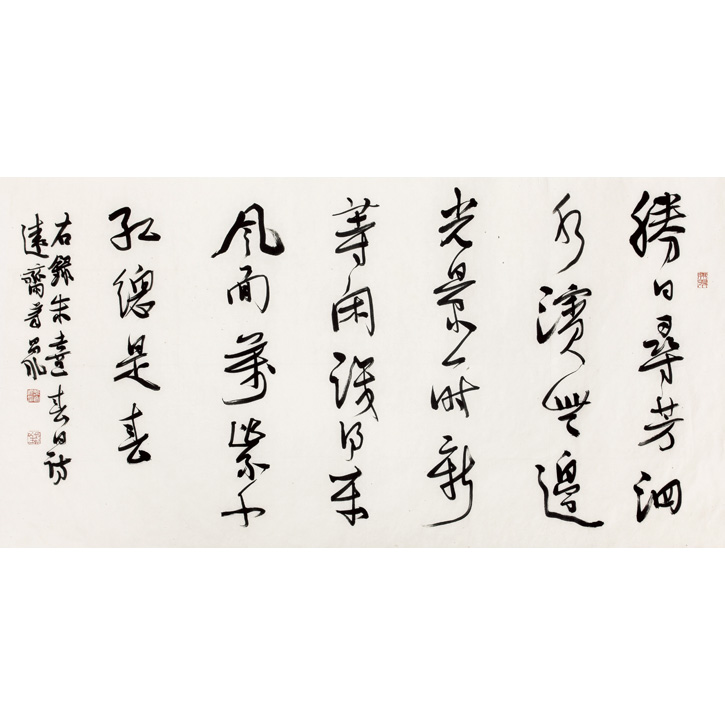 勝日尋芳泗
水濱無邊
光景一時新
等閑識得東
風面萬紫千
紅總是春
右錄朱熹春日詩
遠齋